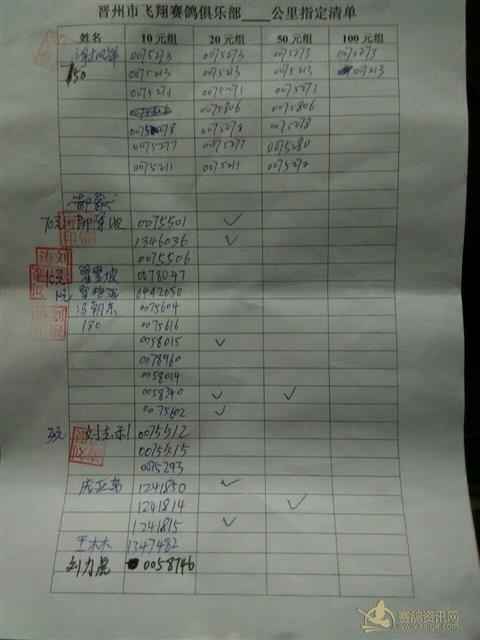 晋州市飞翔赛鸽俱乐部____公里指定清单
姓名 10元组 20元组 50元组 100元组
0075273 0075273 0075273 0075273
150 0075213 0075213 0075213 0075213
0075271 0075271 0075271
0075806 0075806
0075278 0075278 0075278
0075277 0075277 0075280
0075211 0075211 0075272
70元 0075501 ✓
1346036 ✓
0075506
0078047
10元 0442050
冯朝东 0075604
180 0075616
0058015 ✓
0078960
0058014
0058340 ✓ ✓
0075602 ✓
刘志利 0075512
0075515
0075293
庞亚涛 1241850 ✓
1241814 ✓
1241815 ✓
王木木 1347482
刘力虎 0058746
赛鸽资讯网